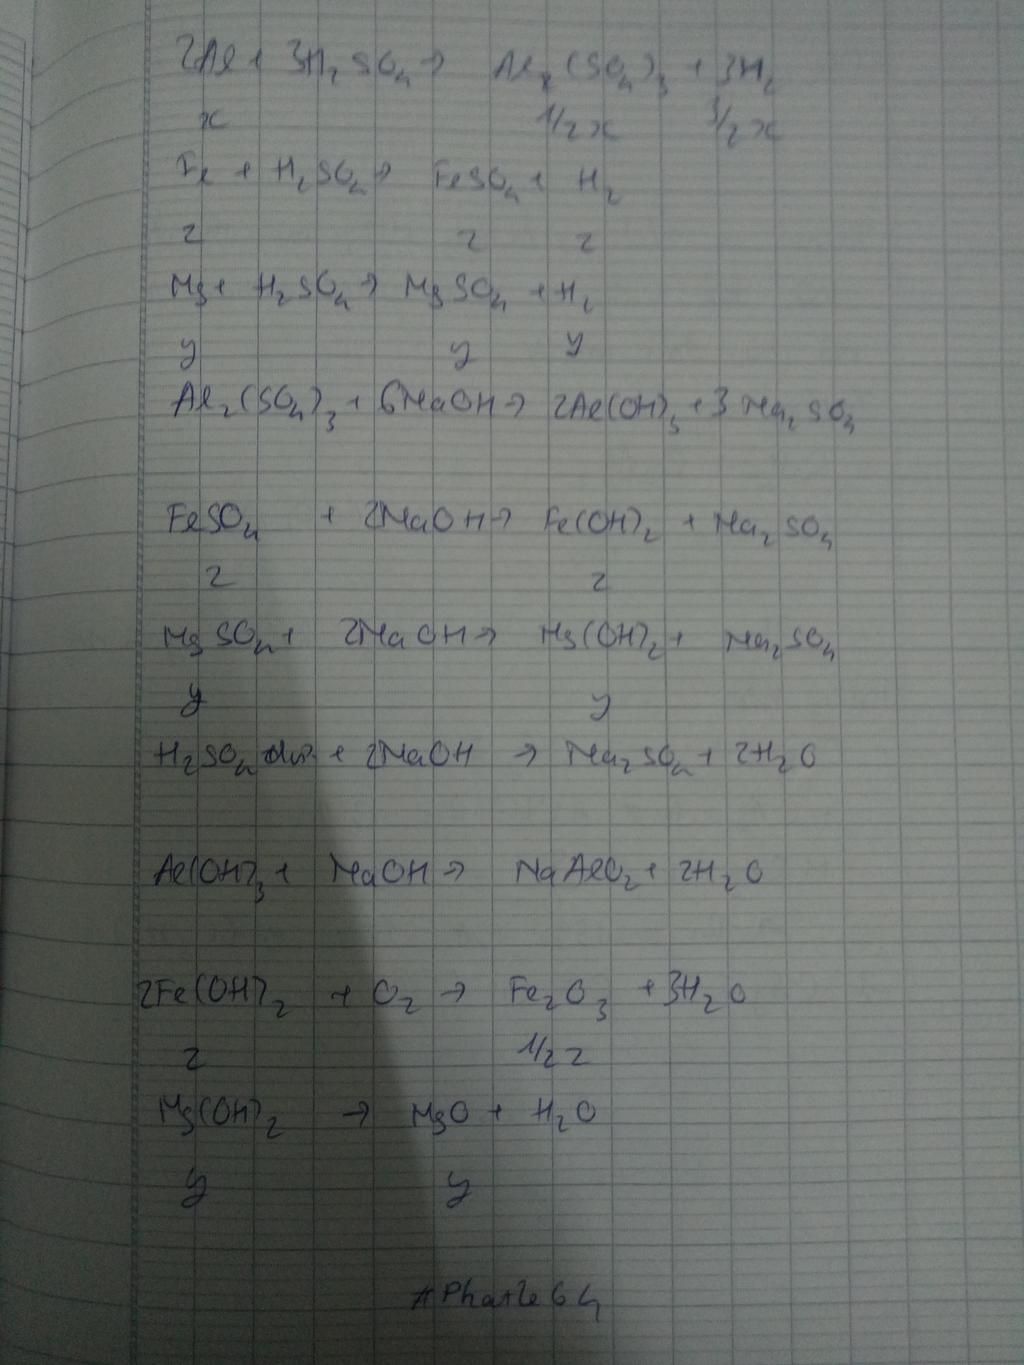 2Al + 3H₂SO₄ → Al₂(SO₄)₃ + 3H₂
x 1/2x 3/2x
Fe + H₂SO₄ → FeSO₄ + H₂
z z z
Mg + H₂SO₄ → MgSO₄ + H₂
y y y
Al₂(SO₄)₃ + 6NaOH → 2Al(OH)₃ + 3Na₂SO₄
FeSO₄ + 2NaOH → Fe(OH)₂ + Na₂SO₄
z z
MgSO₄ + 2NaOH → Mg(OH)₂ + Na₂SO₄
y y
H₂SO₄ dư + 2NaOH → Na₂SO₄ + 2H₂O
Al(OH)₃ + NaOH → NaAlO₂ + 2H₂O
2Fe(OH)₂ + O₂ → Fe₂O₃ + 3H₂O
z 1/2z
Mg(OH)₂ → MgO + H₂O
y y